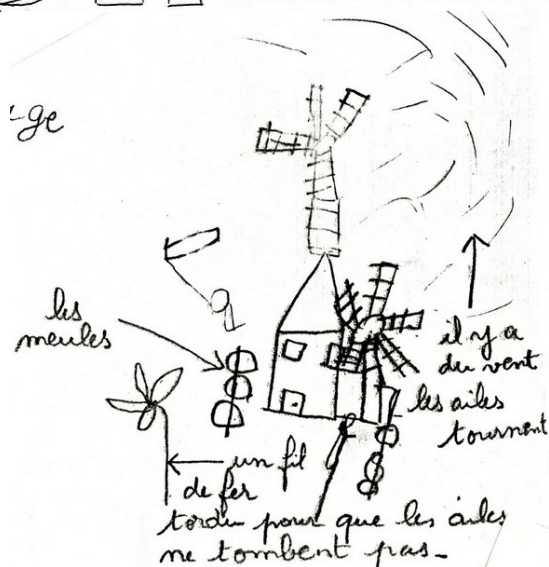 -ge
les
meules
il y a
du vent
les ailes
tournent
un fil
de fer
tordu pour que les ailes
ne tombent pas-